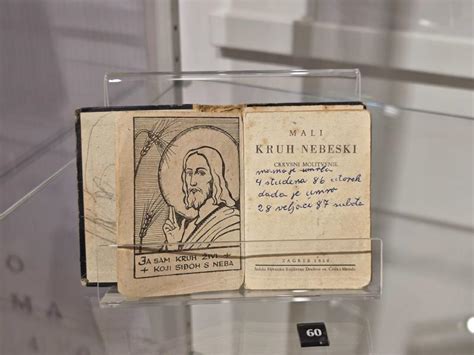 JA SAM KRUH ŽIVI
KOJI SIĐOH S NEBA
MALI
KRUH NEBESKI
CRKVENI MOLITVENIK
mama je umrla
4 studena 86 utorek
dada je umro
28 veljače 87 subota
ZAGREB
60